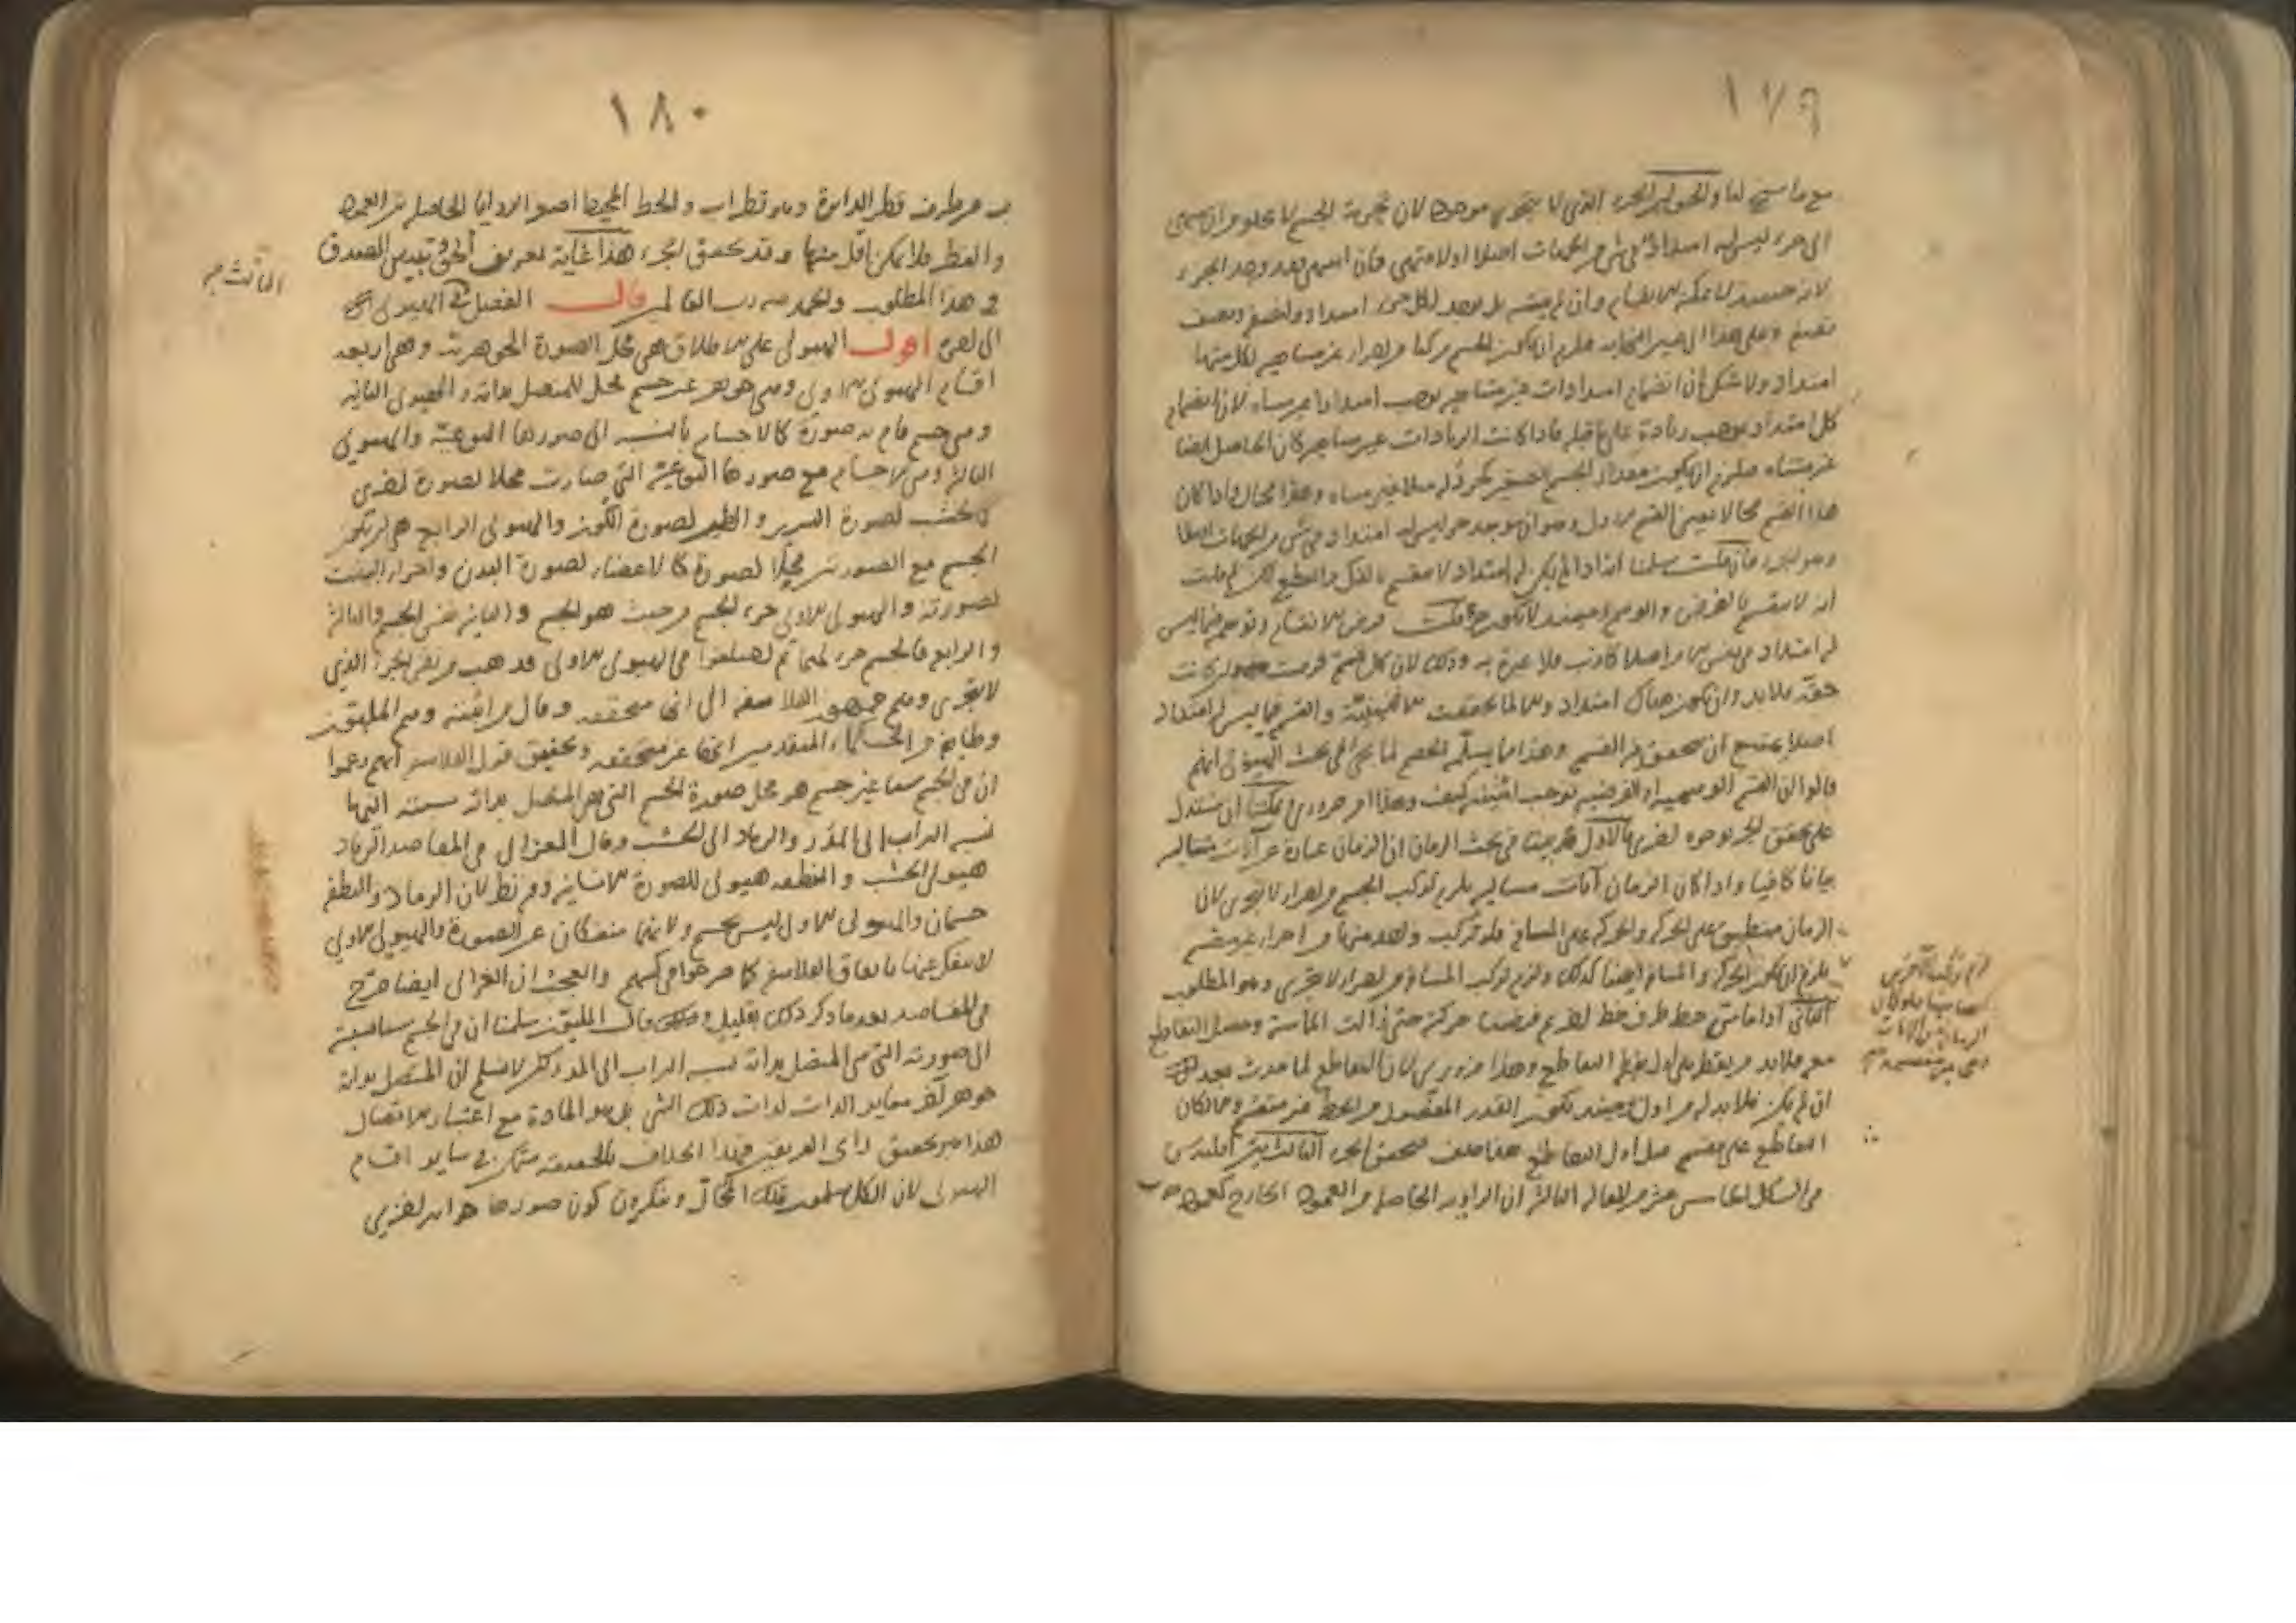 ١٧٩
مع ما سنح لنا والحق ان الجزء الذي لا يتجزى موجود لان تجزية الجسم لا تخلو من ان ينتهي
الى جزء ليس له امتداد في شيء من الجهات اصلا او لا ينتهي فان انتهى فقد وجد الجزء
لانه حينئذ لا يمكنه الانقسام وان لم ينته بل يوجد لكل جزء امتداد ولنصفه ونصف
نصفه وعلى هذا الى غير النهاية فيلزم ان يكون الجسم مركبا من اجزاء غير متناهية لكل منها
امتداد ولا شك ان انضمام امتدادات غير متناهية يوجب امتدادا غير متناه لان انضمام
كل امتداد يوجب زيادة على ما قبله فاذا كانت الزيادات غير متناهية كان الحاصل ايضا
غير متناه فيلزم ان يكون مقدار الجسم الصغير كخردلة مثلا غير متناه وهذا محال واذا كان
هذا القسم محالا تعين القسم الاول وهو ان يوجد جزء ليس له امتداد في شيء من الجهات اصلا
وهو الجزء فان قلت سلمنا انه اذا لم يكن له امتداد لا ينقسم بالفك والقطع لكن لم قلت
انه لا ينقسم بالفرض والوهم وحينئذ لا يكون جزءا قلت فرض الانقسام وتوهمه فيما ليس
له امتداد في نفس الامر اصلا كاذب فلا عبرة به وذلك لان كل قسمة فرضت ان كانت
حقة فلابد وان يكون هناك امتداد والا لما تحققت الاثنينية والقسمة فيما ليس له امتداد
اصلا يمتنع ان يتحقق فيه القسمة وهذا مما يسلمه الخصم لما يجيء في بحث الهيولى انهم
قالوا ان القسمة الوهمية او الفرضية توجب اثنينية كيف وهذا امر ضروري ويمكننا ان نستدل
على تحقق الجزء بوجوه اخرى الاول قد بينا في بحث الزمان ان الزمان عبارة عن آنات متتالية
بيانا كافيا واذا كان الزمان آنات متتالية يلزم تركب الجسم من اجزاء لا تتجزى لان
الزمان منطبق على الحركة والحركة على المسافة فلو تركب واحد منها من اجزاء غير منقسمة
يلزم ان يكون الحركة والمسافة ايضا كذلك ولزم تركب المسافة من اجزاء لا تتجزى وهو المطلوب
الثاني اذا ماس خط طرف خط آخر ثم فرضنا حركته حتى زالت المماسة وحصل التقاطع
معه فلابد من نقطة هي اول نقط التقاطع وهذا ضروري لان التقاطع لما حدث بعد
ان لم يكن فلابد له من اول وحينئذ يكون القدر المفصول من الخط غير منقسم والا لكان
التقاطع على منقسم قبل اول التقاطع هذا خلف فتحقق الجزء الثالث بين اقليدس
في الشكل الخامس عشر من المقالة الثالثة ان الزاوية الحاصلة من العمود الخارج كعمود
الزمان من الآنات
١٨٠
من طرف قطر الدائرة وهو قطر اب والخط المحيط اصغر الزوايا الحاصلة بين العمود
والقطر فلا يمكن اقل منها وقد تحقق الجزء هذا غاية تعريف الحق وتبيين الصدق
في هذا المطلوب والحمد لله رب العالمين قال الفصل في الهيولى
الى آخره اقول الهيولى على الاطلاق هي محل الصورة الجوهرية وهي اربعة
اقسام الهيولى الاولى وهي جوهر غير جسم محل للمتصل بذاته والهيولى الثانية
وهي جسم قام به صورة كالاجسام بالنسبة الى صورها النوعية والهيولى
الثالثة وهي الاجسام مع صورها النوعية التي صارت محلا لصورة اخرى
كالخشب لصورة السرير والطين لصورة الكوز والهيولى الرابعة هي ان يكون
الجسم مع الصورتين محلا لصورة كالاعضاء لصورة البدن واجزاء البيت
لصورته والهيولى الاولى جزء الجسم من حيث هو الجسم والثانية نفس الجسم والثالثة
والرابعة فالجسم جزء لهما ثم اختلفوا في الهيولى الاولى فذهب من نفى الجزء الذي
لا يتجزى وهم جمهور الفلاسفة الى انها متحققة وقال مراثبته وهم المليون
وطائفة من الحكماء المتقدمين انها غير متحققة وتحقيق قول الفلاسفة انهم زعموا
ان في الجسم شيئا غير جسم هو محل صورة الجسم التي هي المتصل بذاته نسبته اليها
نسبة التراب الى المدر والرماد الى الخشب وقال الغزالي في المقاصد الرماد
هيولى الخشب والنطفة هيولى للصورة الانسانية وفيه نظر لان الرماد والنطفة
جسمان والهيولى الاولى ليس بجسم ولانهما منفكان عن الصورة والهيولى الاولى
لا تنفك عنها باتفاق الفلاسفة كما صرحوا في كتبهم والعجب ان الغزالي ايضا صرح
في المقاصد بعد ما ذكر ذلك بقليل وقال المليون سلمنا ان في الجسم شيئا نسبته
الى صورته التي هي المتصل بذاته نسبة التراب الى المدر لكن لا نسلم ان المتصل بذاته
جوهر آخر مغاير الذات لذات ذلك الشيء بل هو المادة مع اعتبار الاتصال
هذا هو تحقيق رأى الفريقين فهذا الخلاف بالحقيقة متمكن في ساير اقسام
الهيولى لان الكل يسلمون تلك المحال وينكرون كون صورها جواهر اخرى